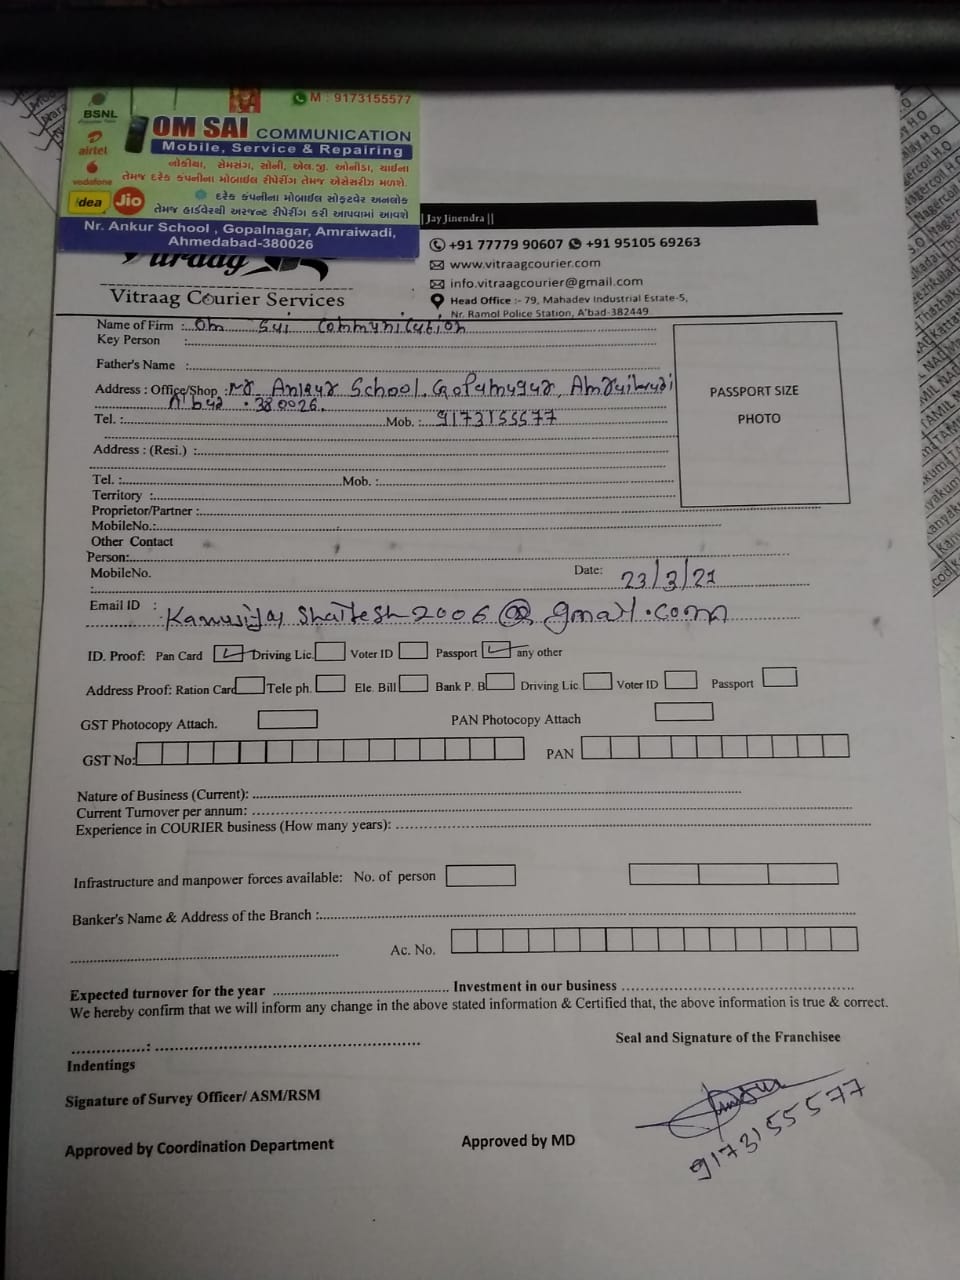 M : 9173155577
BSNL
airtel
vodafone
idea
Jio
OM SAI COMMUNICATION
Mobile, Service & Repairing
નોકીયા, સેમસંગ, સોની, એલ.જી. ઓનીડા, ચાઈના
તેમજ દરેક કંપનીના મોબાઈલ રીપેરીંગ તેમજ એસેસરીઝ મળશે.
દરેક કંપનીના મોબાઈલ સોફટવેર અનલોક
તેમજ હાર્ડવેરથી અરજન્ટ રીપેરીંગ કરી આપવામાં આવશે
Nr. Ankur School , Gopalnagar, Amraiwadi,
Ahmedabad-380026
Jay Jinendra ||
+91 77779 90607 +91 95105 69263
www.vitraagcourier.com
info.vitraagcourier@gmail.com
Head Office :- 79, Mahadev Industrial Estate-5,
Nr. Ramol Police Station, A'bad-382449
Vitraag
Vitraag Courier Services
Name of Firm : Om Sai Communication
Key Person :
Father's Name :
Address : Office/Shop : School, Gopalnagar, Amraiwadi
A'bad . 380026.
Tel. : Mob. : 9173155577
Address : (Resi.) :
Tel. : Mob. :
Territory :
Proprietor/Partner :
MobileNo.:
Other Contact
Person:
MobileNo. Date: 23/3/21
:
PASSPORT SIZE
PHOTO
Email ID : Shailesh2006@gmail.com
ID. Proof: Pan Card Driving Lic. Voter ID Passport any other
Address Proof: Ration Card Tele ph. Ele. Bill Bank P. B Driving Lic Voter ID Passport
GST Photocopy Attach. PAN Photocopy Attach
GST No: PAN
Nature of Business (Current):
Current Turnover per annum:
Experience in COURIER business (How many years):
Infrastructure and manpower forces available: No. of person
Banker's Name & Address of the Branch :
Ac. No.
Expected turnover for the year Investment in our business
We hereby confirm that we will inform any change in the above stated information & Certified that, the above information is true & correct.
Seal and Signature of the Franchisee
Indentings
Signature of Survey Officer/ ASM/RSM
Approved by Coordination Department Approved by MD
9173155577